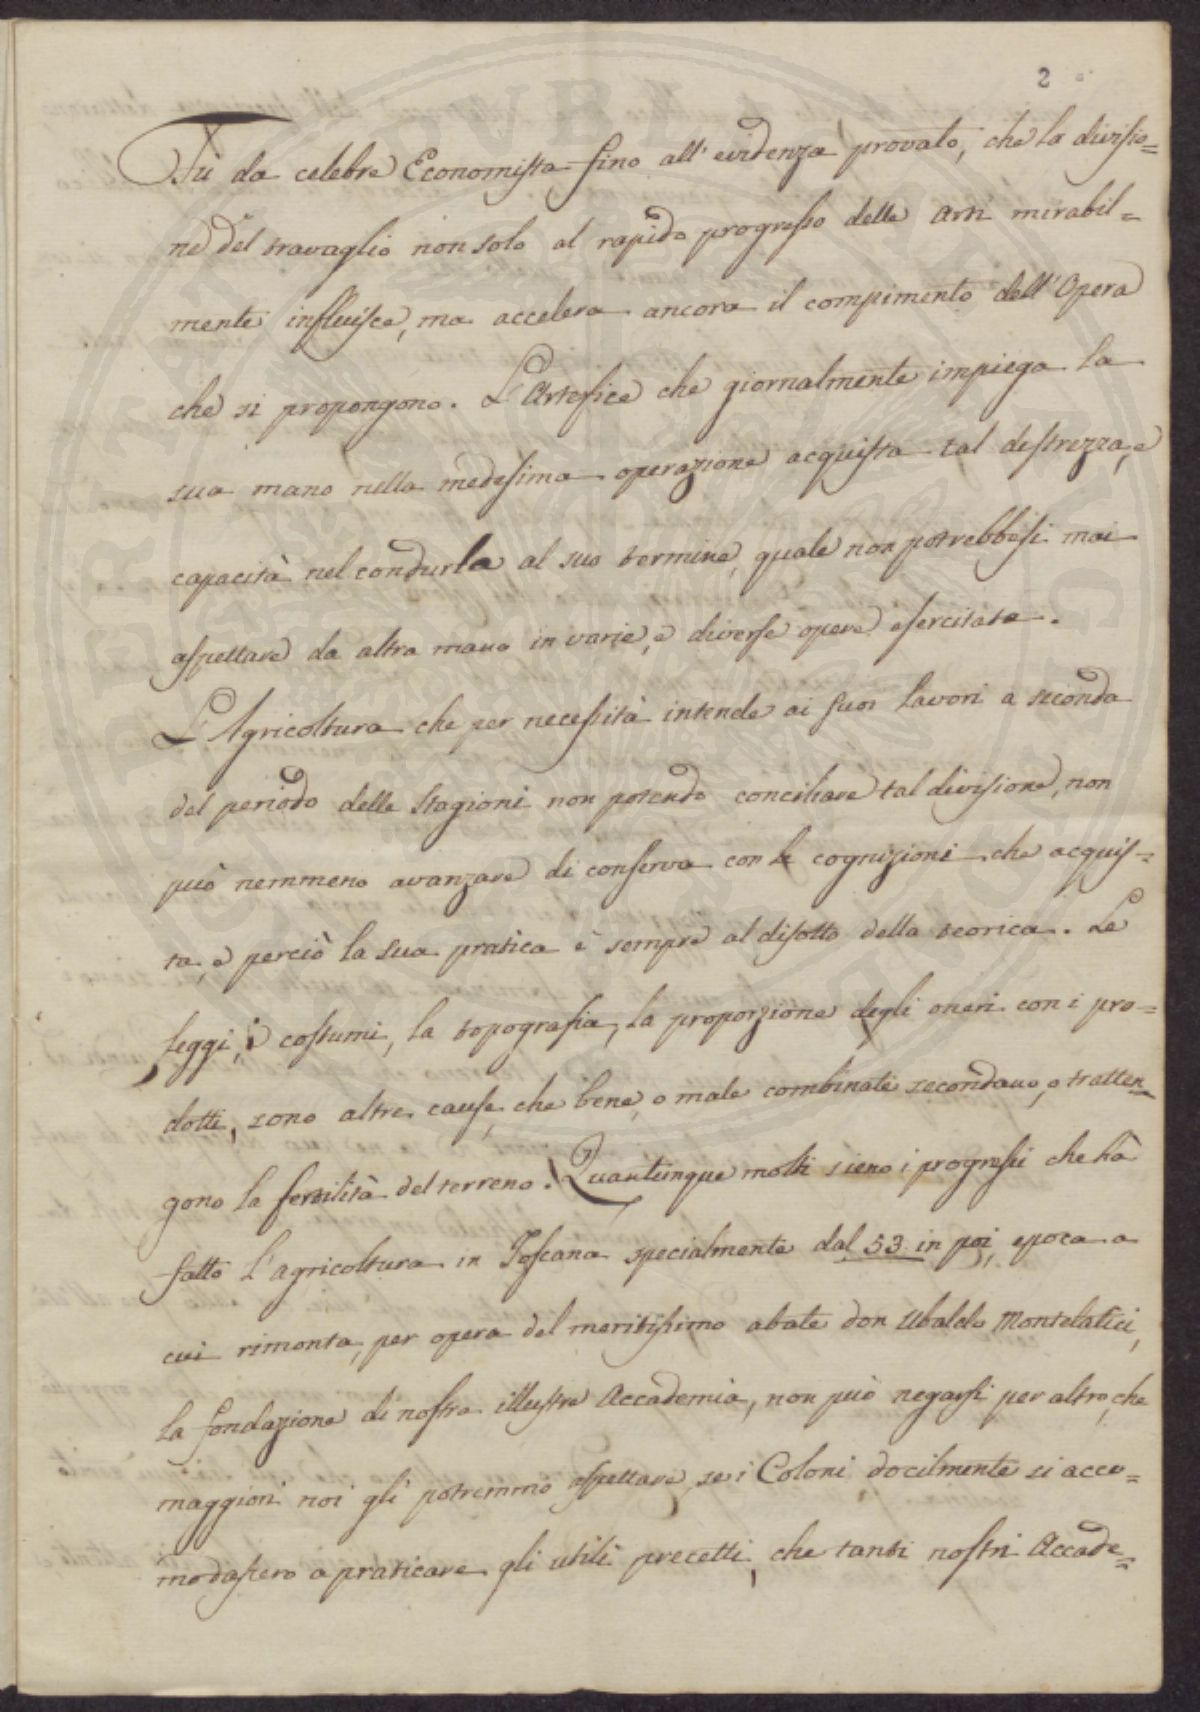 2
Fù da celebre Economista fino all'evidenza provato, che la divisio=
ne del travaglio non solo al rapido progresso delle Arti mirabil=
mente influisce, ma accelera ancora il compimento dell'Opera
che si propongono. L'Artefice che giornalmente impiega la
sua mano nella medesima operazione acquista tal destrezza, e
capacità nel condurla al suo termine, quale non potrebbesi mai
aspettare da altra mano in varie, e diverse opere esercitata.
L'Agricoltura che per necessità intende ai suoi lavori a seconda
del periodo delle Stagioni non potendo conciliare tal divisione, non
può nemmeno avanzare di conserva con le cognizioni che acquis=
ta, e perciò la sua pratica è sempre al disotto della teorica. Le
leggi, i costumi, la topografia, la proporzione degli oneri con i pro=
dotti, sono altre cause, che bene, o male combinate secondano, o tratten=
gono la fertilità del terreno. Quantunque molti sieno i progressi che hà
fatto l'agricoltura in Toscana specialmente dal 53 in poi, epoca a
cui rimonta, per opera del meritissimo abate don Ubaldo Montelatici,
la fondazione di nostra illustre Accademia, non può negarsi per altro, che
maggiori noi gli potremmo aspettare, se i Coloni docilmente si acco=
modassero a praticare gli utili precetti, che tanti nostri Accade=